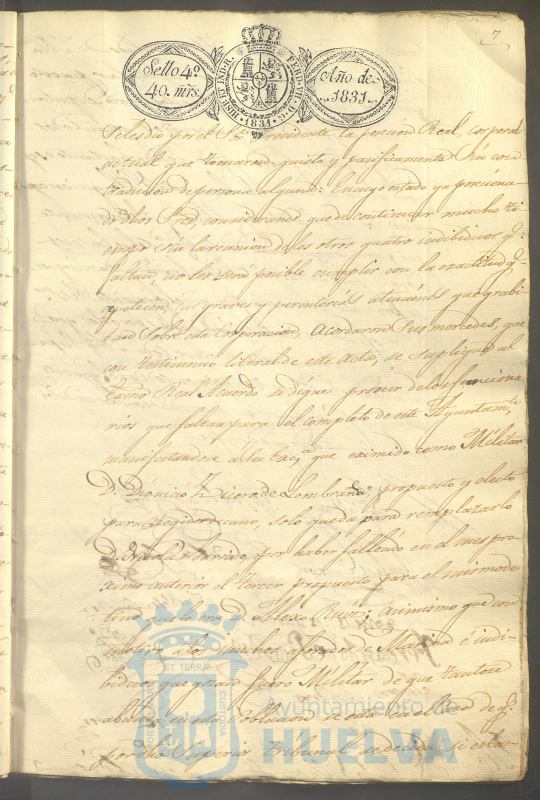 7
Sello 4º
40. mrs.
HISP. ET IND. R.
FERD. VII. D. G.
1831
Año de
1831.
Se les dio por el Sr. Presidente la posesion Real, corporal
actual que tomaron quieta y pacificamente sin con
tradiccion de persona alguna: En cuyo estado ya posesiona
dos dhos Sres, considerando que de continuar mucho ti
empo sin la reunion de los otros quatro individuos q.e
faltan, no les sera posible cumplir con la exactitud q.e
apetecen, los graves y perentorias atenciones que gravi
tan sobre esta Corporacion, acordaron sus mercedes, que
con testimonio literal de este Acto, se suplique al
mismo Real Acuerdo se digne proveer de los funciona
rios que faltan para el completo de este Ayuntam.to,
manifestandose á que eximido como Militar
D. Dionicio Dicero de Lombraña, propuesto y electo
para Regidor decano, solo queda para remplazarlo
D. Nicolas Garrido, por haber fallecido en el mes pro
ximo anterior el tercer propuesto para el mismo des
tino que lo era D. Alexo Ruiz; asimismo que con
motivo a los muchos aforados de Marina é indi
biduos que gozan fuero Militar de que tanto
abunda esta Poblacion se está en el caso de q.e
por dho Superior tribunal se decida si estan
ET TERRÆ
Ayuntamiento de
HUELVA